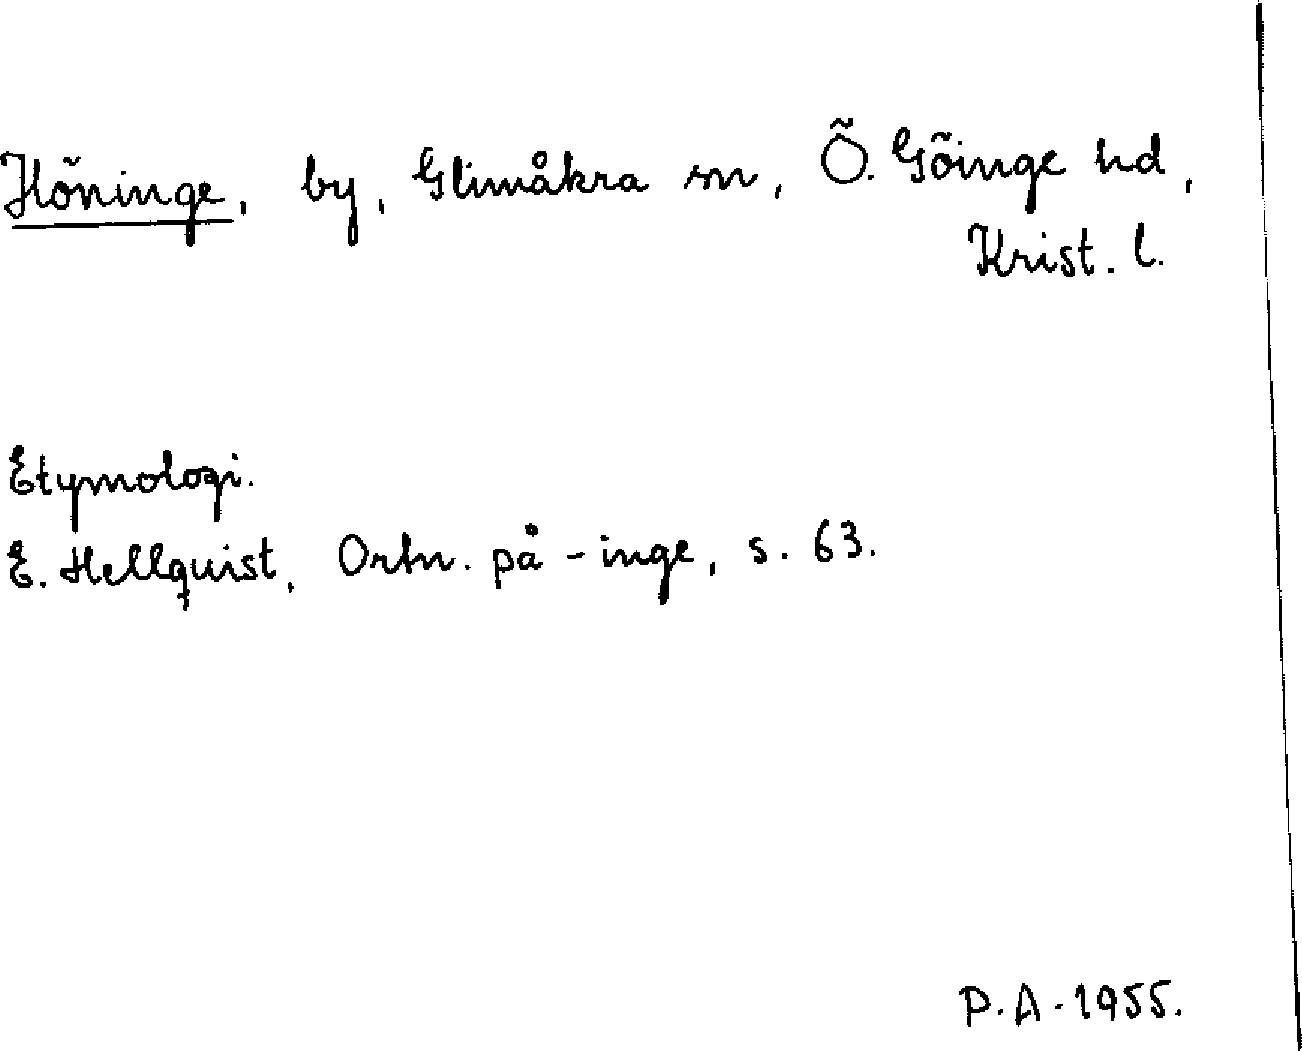 Höninge, by, Glimåkra sn, Ö. Göinge hd,
Krist. l.
Etymologi.
E. Hellquist, Ortn. på -inge, s. 63.
P.A. 1955.